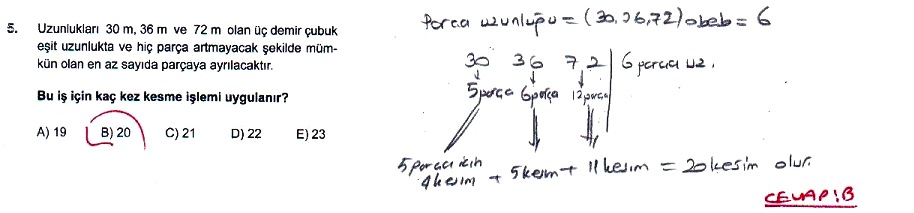 5. Uzunlukları 30 m, 36 m ve 72 m olan üç demir çubuk
eşit uzunlukta ve hiç parça artmayacak şekilde müm-
kün olan en az sayıda parçaya ayrılacaktır.
Bu iş için kaç kez kesme işlemi uygulanır?
A) 19 B) 20 C) 21 D) 22 E) 23
Parça uzunluğu = (30, 36, 72) obeb = 6
30 36 72 | 6 parça uz.
5 parça 6 parça 12 parça
5 parça için
4 kesim + 5 kesim + 11 kesim = 20 kesim olur.
CEVAP: B